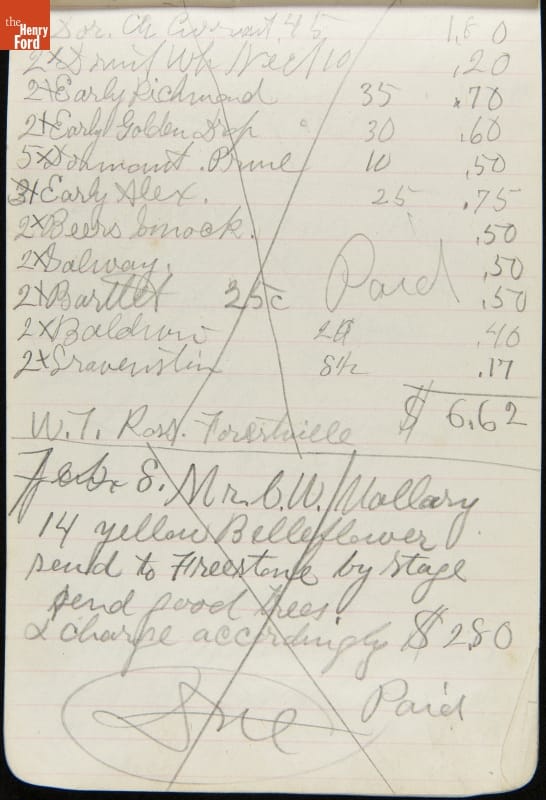 the Henry Ford
Dor. Ch Currant, 45 1.80
2x 10 .20
2x Early Richmond 35 .70
2x Early Golden Drop 30 .60
5x Dormant Prune 10 .50
3x Early Alex. 25 .75
2x Beers Smock. .50
2x Salway. .50
2x Bartlet 25c .50
Paid
2x Baldwin 20 .40
2x Gravenstin 8½ .17
$ 6.62
W.T. Ross. Forestville
Feb. 8. Mr. C.W. Mallary
14 yellow Belleflower
send to Freestone by stage
send good trees
& charge accordingly $ 2.80
Paid